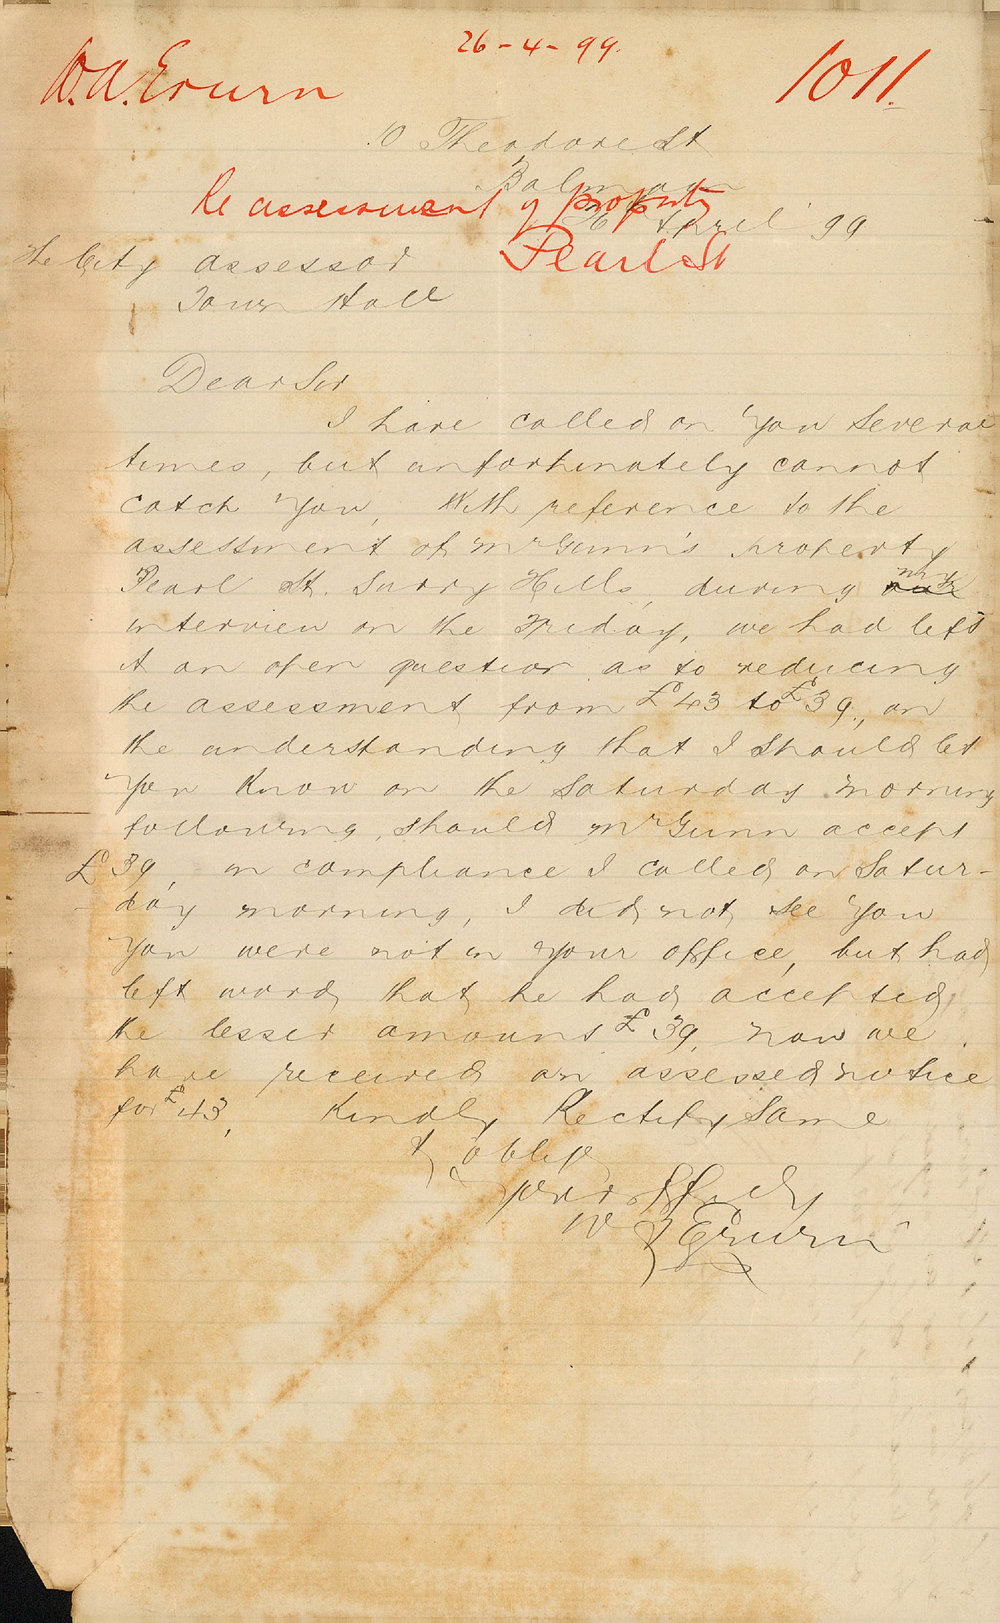 26-4-99.
W.A. Erwin
1011.
10 Theodore St
Balmain
26 April 99
Re assessment of property
Pearl St
The City assessor
Town Hall
Dear Sir
I have called on You Several
times, but unfortunately cannot
catch You, With reference to the
assessment of Mr Gunn's property
Pearl St. Surry Hills, during my
interview on the Friday, we had left
it an open question as to reducing
the assessment from £43 to £39, on
the understanding that I should let
You Know on the Saturday morning
following, should Mr Gunn accept
£39, in compliance I called on Satur-
day morning, I did not see You
You were not in Your office, but had
left word that he had accepted
the lesser amount £39, now we
have received an assessed notice
for £43, Kindly Rectify Same
& oblige
Yours